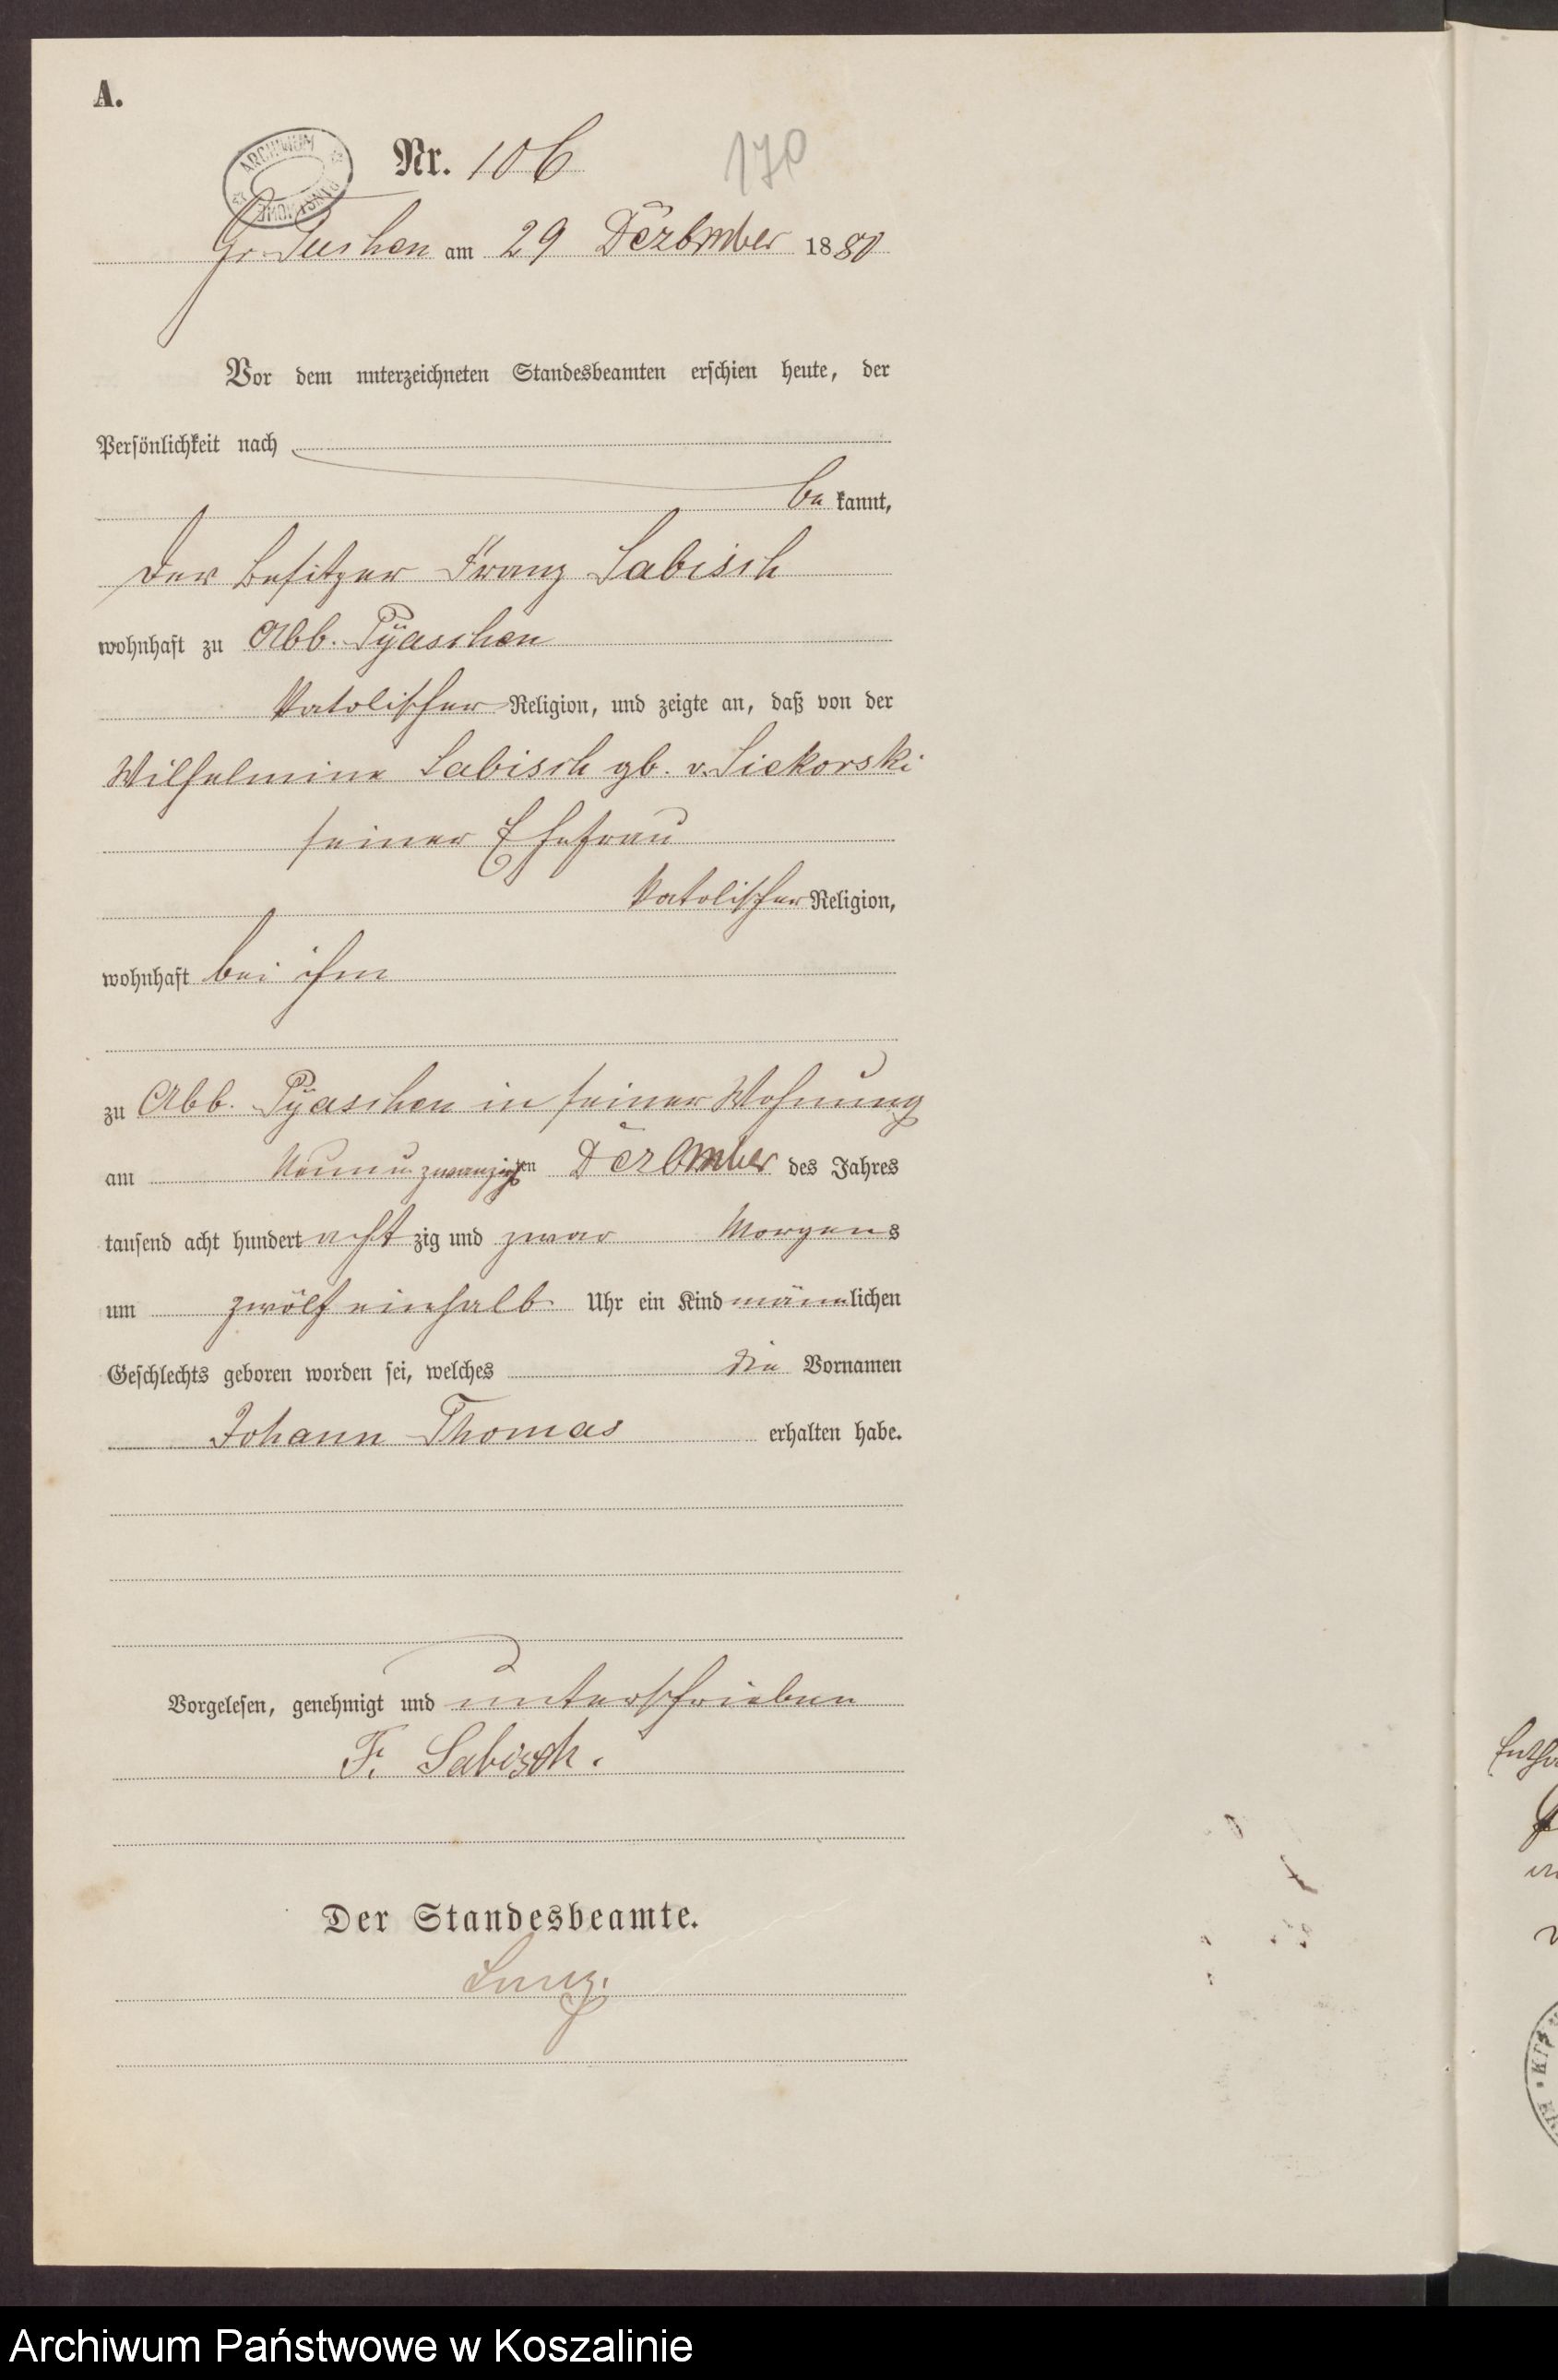 A.
ARCHIWUM
Nr. 106
170
Gr. Tuchen am 29 Dezember 1880
Vor dem unterzeichneten Standesbeamten erschien heute, der
Persönlichkeit nach
be kannt,
der Besitzer Franz Sabisch
wohnhaft zu Abb. Pÿaschen
katolischer Religion, und zeigte an, daß von der
Wilhelmine Sabisch gb. v. Siekorski
seiner Ehefrau
katolischer Religion,
wohnhaft bei ihm
zu Abb. Pÿaschen in seiner Wohnung
am Neun u. zwanzigsten Dezember des Jahres
tausend acht hundert acht zig und zwar Morgens
um zwölf einhalb Uhr ein Kind männlichen
Geschlechts geboren worden sei, welches die Vornamen
Johann Thomas erhalten habe.
Vorgelesen, genehmigt und unterschrieben
F. Sabisch.
Der Standesbeamte.
Archiwum Państwowe w Koszalinie